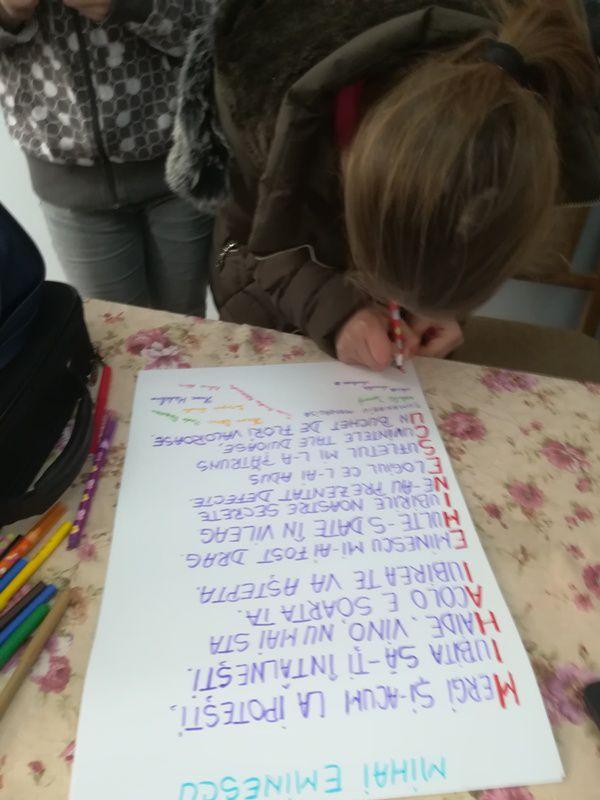 MIHAI EMINESCU
MERGI ȘI-ACUM LA IPOTEȘTI,
IUBITA SĂ-ȚI ÎNTALNEȘTI.
HAIDE, VINO, NU MAI STA
ACOLO E SOARTA TA.
IUBIREA TE VA AȘTEPTA.
EMINESCU MI-AI FOST DRAG
MULTE-S DATE ÎN VILEAG
IUBIRILE NOASTRE SECRETE
NE-AU PREZENTAT DEFECTE
ELOGIUL CE L-AI ADUS
SUFLETUL MI L-A PĂTRUNS
CUVINTELE TALE DUIOASE,
UN BUCHET DE FLORI VALOROASE.